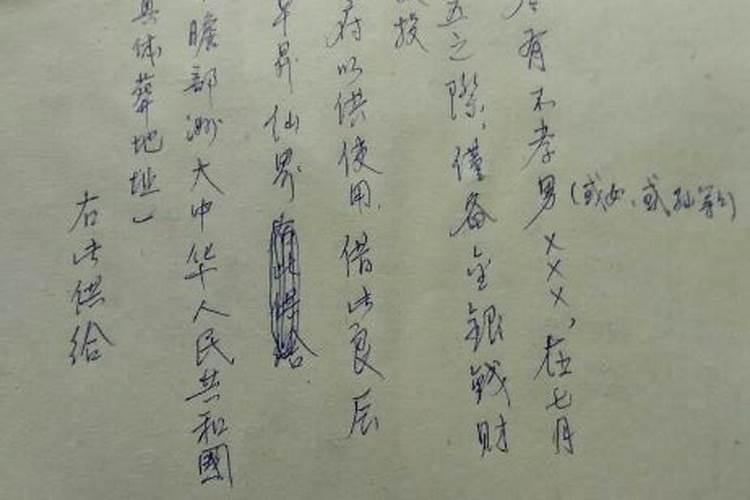 有不孝男(或女、或孙等)×××，在七月
五之际，僅备金銀錢财
投
府以供使用，借此良辰
昇仙界
赡部洲大中华人民共和國
具体葬地址)
右此供给